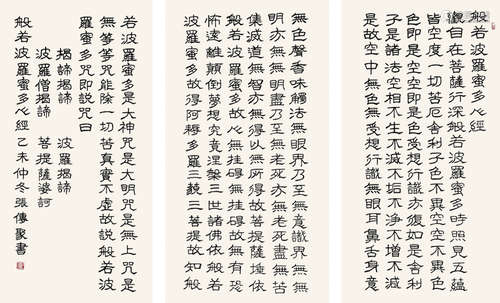 般若波羅蜜多心經
觀自在菩薩行深般若波羅蜜多時照見五蘊
皆空度一切苦厄舍利子色不異空空不異色
色即是空空即是色受想行識亦復如是舍利
子是諸法空相不生不滅不垢不淨不增不減
是故空中無色無受想行識無眼耳鼻舌身意
無色聲香味觸法無眼界乃至無意識界無無
明亦無無明盡乃至無老死亦無老死盡無苦
集滅道無智亦無得以無所得故菩提薩埵依
般若波羅蜜多故心無挂礙無挂礙故無有恐
怖遠離顛倒夢想究竟涅槃三世諸佛依般若
波羅蜜多故得阿耨多羅三藐三菩提故知般
若波羅蜜多是大神咒是大明咒是無上咒是
無等等咒能除一切苦真實不虛故說般若波
羅蜜多咒即說咒曰
揭諦揭諦 波羅揭諦
波羅僧揭諦 菩提薩婆訶
般若波羅蜜多心經 乙未仲冬張傳聚書